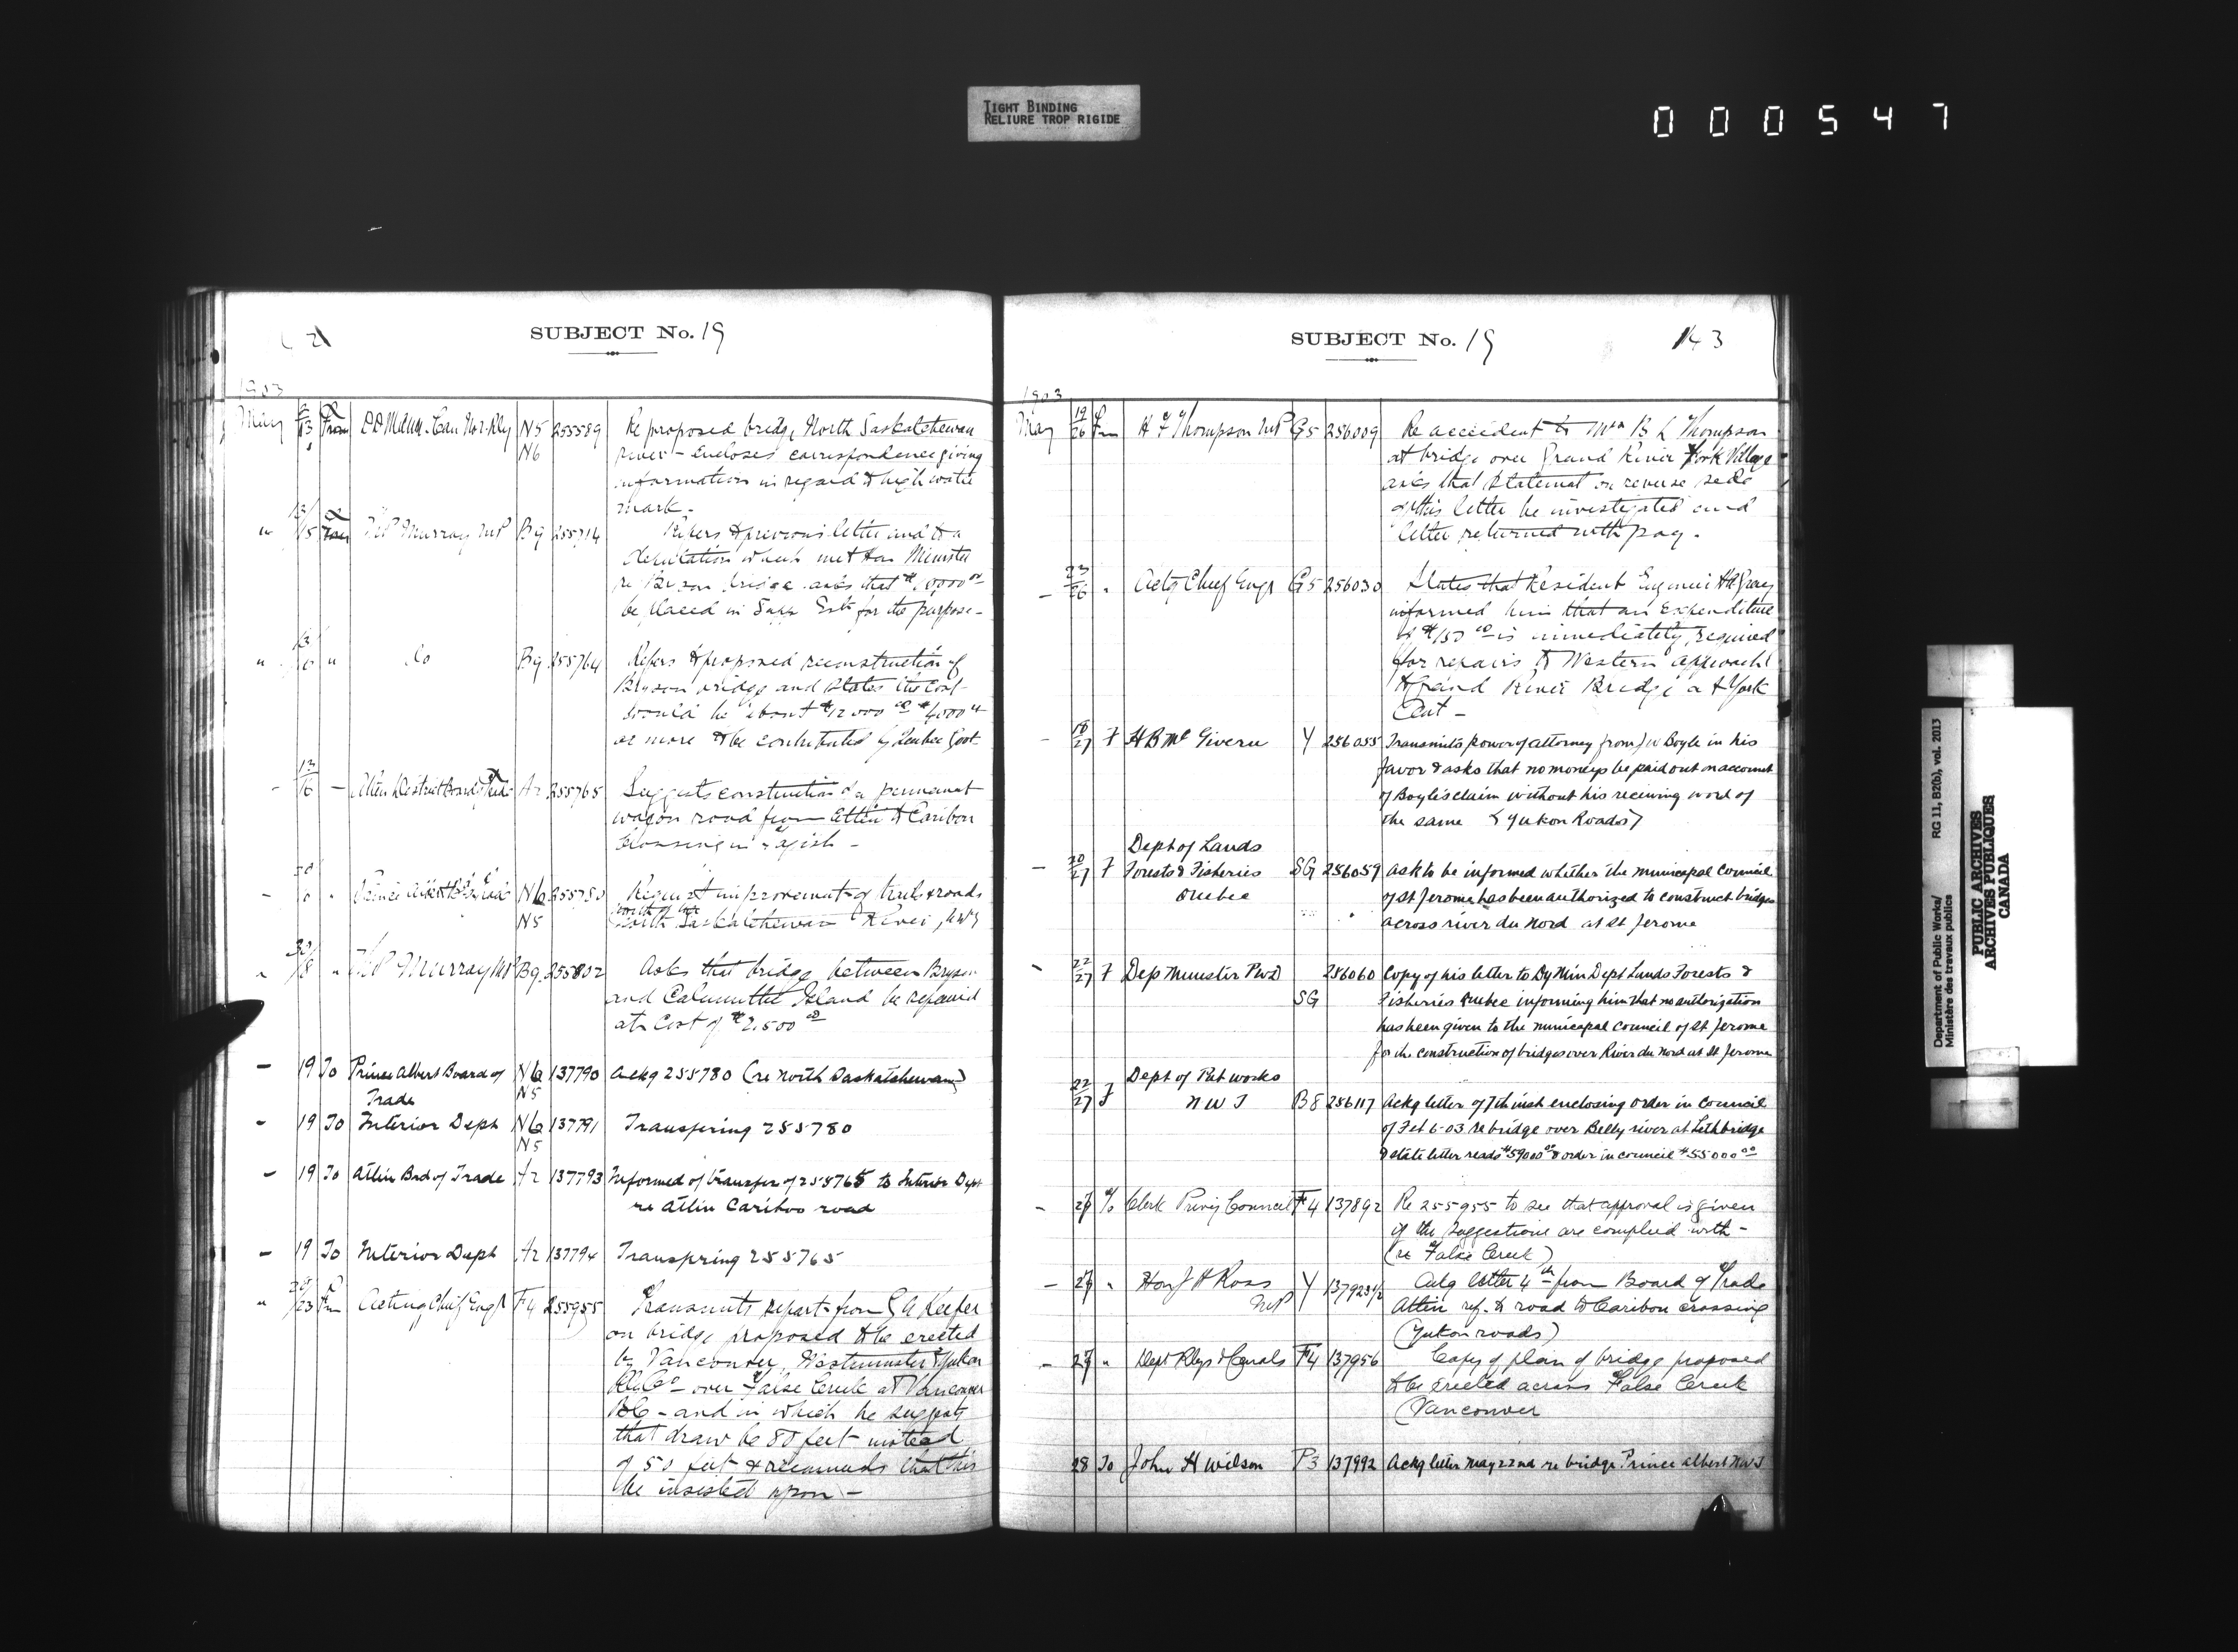 TIGHT BINDING
RELIURE TROP RIGIDE
000547
SUBJECT No. 19
1903
May 13 From D D Mann. Can Nor. Rly N5 255589 Re proposed bridge North Saskatchewan
N6 river - encloses correspondence giving
information in regard to high water
mark -
" 15 From Murray MP Bg 255714 Refers to previous letter and to a
deputation which met Hon Minister
re Bryson bridge asks that
be placed in Supp Ests for the purpose -
" " Do Bg 255764 Refers to proposed reconstruction of
Bryson bridge and states the cost
would be about $12000 00 $4000 00
or more to be contributed by Quebec Govt
- 13/16 - Atlin District Board of Trade A2 255765 Suggests construction of a permanent
wagon road from Atlin to Caribou
Crossing in Tagish -
- " Prince Albert Bd of Trade N6 255780 Request improvement of trails & roads
N5 north of the
North Saskatchewan River, NWT
" 18 " Murray MP Bg. 255802 Asks that bridge between Bryson
and Calumette Island be repaired
at a cost of $2,500 00
- 19 To Prince Albert Board of N6 137790 Ackg 255780 (re North Saskatchewan)
Trade N5
- 19 To Interior Dept N6 137791 Transfering 255780
N5
- 19 To Atlin Brd of Trade A2 137793 Informed of transfer of 255765 to Interior Dept
re Atlin Cariboo road
- 19 To Interior Dept A2 137794 Transfering 255765
" 23 Fm Acting Chief Engr F4 255955 Transmits report from G A Keefer
on bridge proposed to be erected
by Vancouver, Westminster & Yukon
Rly Co - over False Creek at Vancouver
BC - and in which he suggests
that draw be 80 feet instead
of 50 feet & recommends that this
be insisted upon -
SUBJECT No. 19 143
1903
May 19/26 Fm A T Thompson MP G5 256009 Re accident to Mrs B L Thompson
at bridge over Grand River York Village
asks that statement on reverse side
of this letter be investigated and
letter returned with pay.
- 23/26 " Actg Chief Engr G5 256030 States that Resident Engineer H A Gray
informed him that an expenditure
of $150 00 is immediately required
for repairs to Western approach
to Grand River Bridge at York
Ont -
- 18/27 F H B McGivern Y 256055 Transmits power of attorney from J W Boyle in his
favor & asks that no moneys be paid out on account
of Boyle's claim without his receiving word of
the same (Yukon Roads)
Dept of Lands
- 20/27 F Forests & Fisheries SG 256059 Ask to be informed whether the municipal council
Quebec of St Jerome has been authorized to construct bridges
across river du Nord at St Jerome
- 22/27 F Dep Minister PWD 256060 Copy of his letter to Dy Min Dept Lands Forests &
SG Fisheries Quebec informing him that no authorization
has been given to the municipal council of St Jerome
for the construction of bridges over River du Nord at St Jerome
Dept of Pub works
22/27 F N W T B8 256117 Ackg letter of 7th inst enclosing order in Council
of Feb 6-03 re bridge over Belly river at Lethbridge
& state letter reads $59000 00 & order in council $55000 00
- 27 To Clerk Privy Council F4 137892 Re 255955 to see that approval is given
if the suggestions are complied with -
(re False Creek)
- 27 " Hon J H Ross Y 137923½ Ackg letter 4th from Board of Trade
MP Atlin ref. to road to Caribou crossing
(Yukon roads)
- 27 " Dept Rlys & Canals F4 137956 Copy of plan of bridge proposed
to be erected across False Creek
(Vancouver
28 To John H Wilson P3 137992 Ackg letter May 22nd re bridge Prince Albert NWT
Department of Public Works/ RG 11, B2(b), vol. 2013
Ministère des travaux publics
PUBLIC ARCHIVES
ARCHIVES PUBLIQUES
CANADA